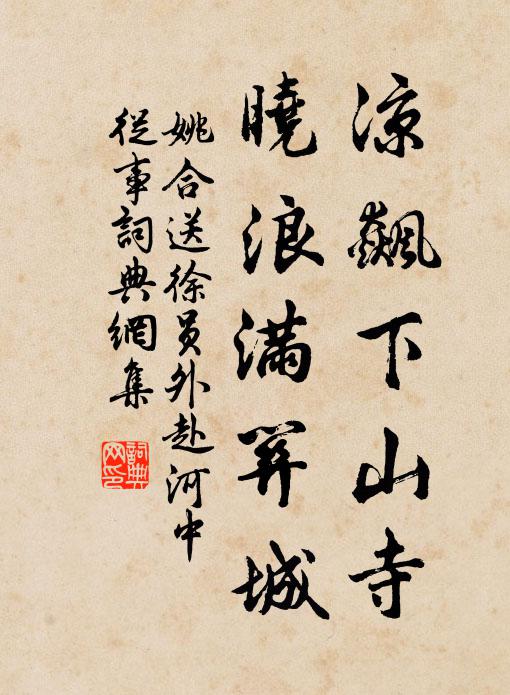 涼飆下山寺
曉浪滿關城
姚合送徐員外赴河中
從事詞典網集
詞典
网印